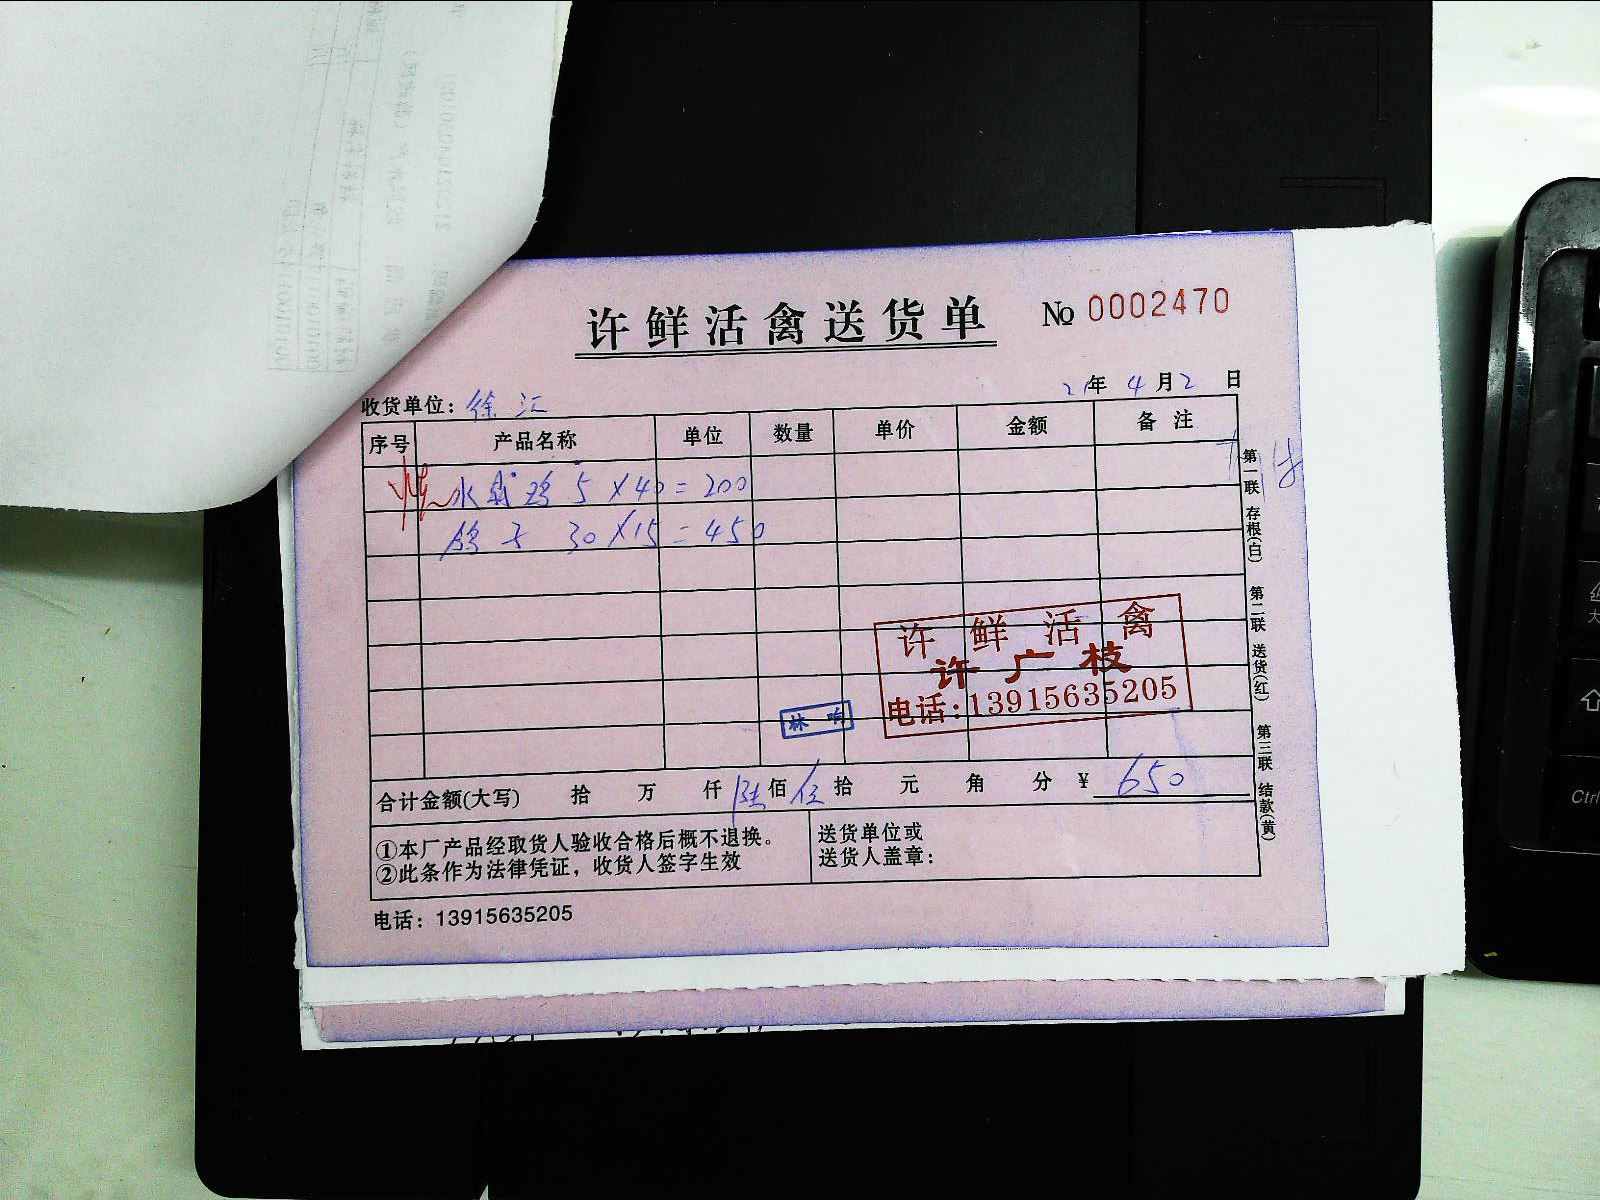 许鲜活禽送货单 № 0002470
收货单位：徐汇 21年4月2日
序号 产品名称 单位 数量 单价 金额 备注
水 鸡 5×40=200
鸽子 30×15=450
许鲜活禽
许广枝
电话:13915635205
林响
合计金额(大写) 拾 万 仟 陆佰 伍拾 元 角 分 ¥ 650
①本厂产品经取货人验收合格后概不退换。
②此条作为法律凭证，收货人签字生效
送货单位或
送货人盖章：
电话：13915635205
第一联 存根(白) 第二联 送货(红) 第三联 结款(黄)